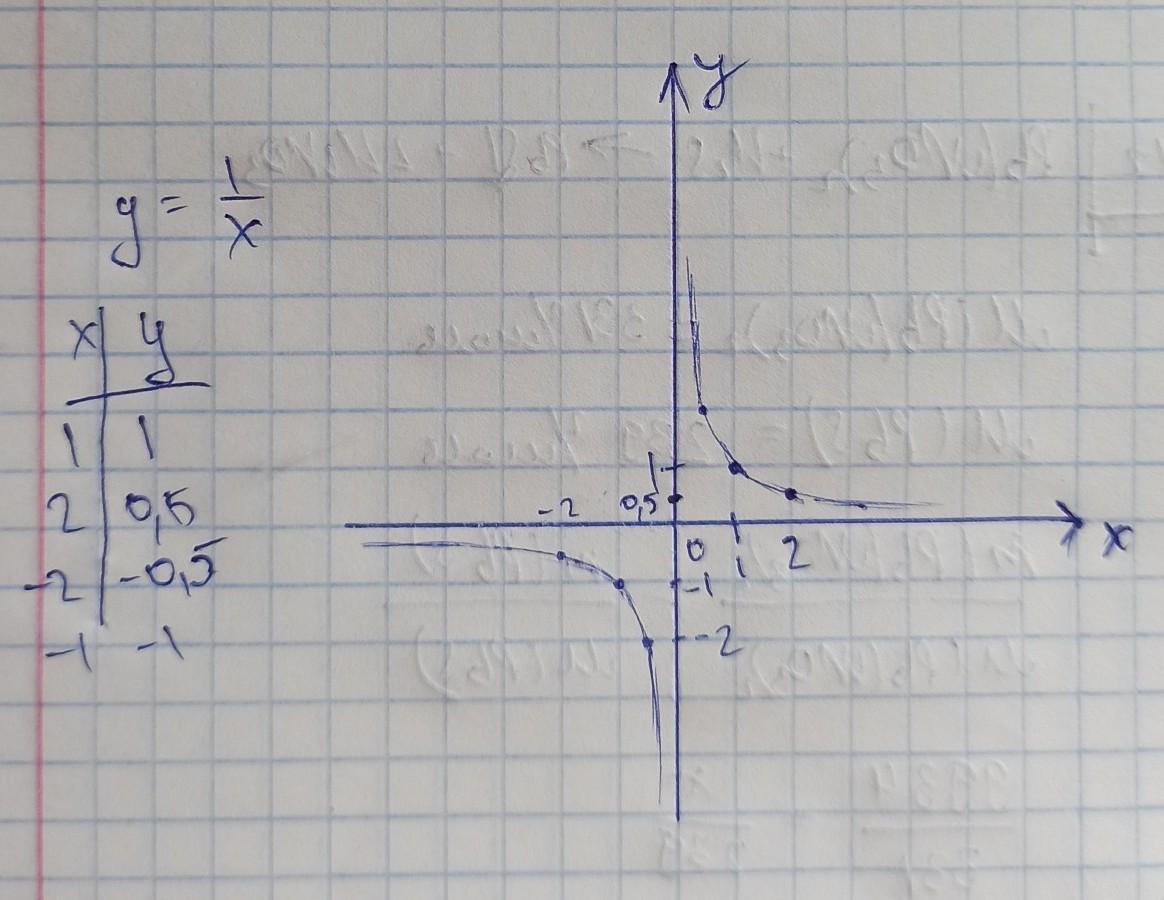 y = 1/x
x | y
1 | 1
2 | 0,5
-2 | -0,5
-1 | -1
y
1
0,5
-2
0
1
2
x
-1
-2